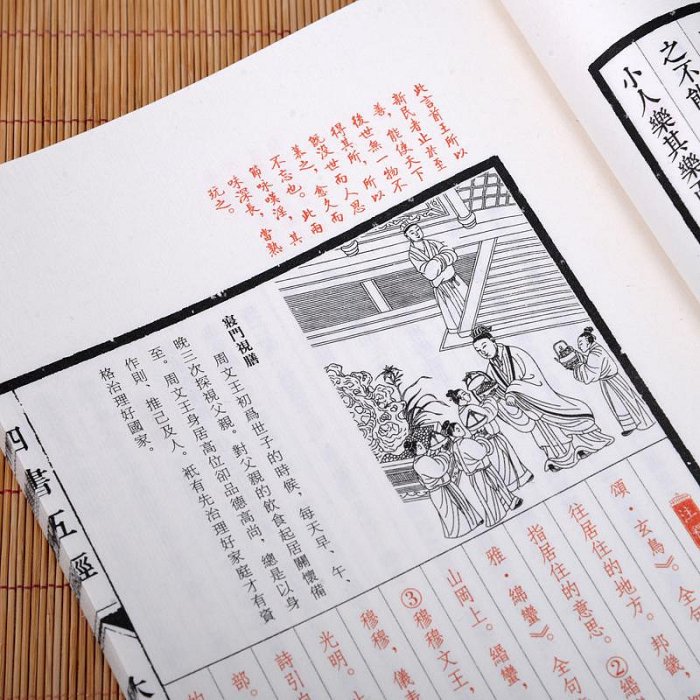 之不能
小人樂其樂
此言前王所以
新民者止於至
善,能使天下
後世無一物不
得其所,所以
既沒世而人思
慕之,愈久而
不忘也。此兩
節咏嘆淫,其
味深長,當熟
玩之。
寢門視膳
周文王初爲世子的時候,每天早、午、
晚三次探視父親。對父親的飲食起居關懷備
至。周文王身居高位卻品德高尚,總是以身
作則、推己及人。衹有先治理好家庭才有資
格治理好國家。
注
頌·玄鳥》。全
往居住的地方。邦畿
指居住的意思。②
雅·緜蠻》。全句
山岡上。緡蠻,
③穆穆文王,
穆穆,儀表
光明。
詩引
部。
四書五經
大